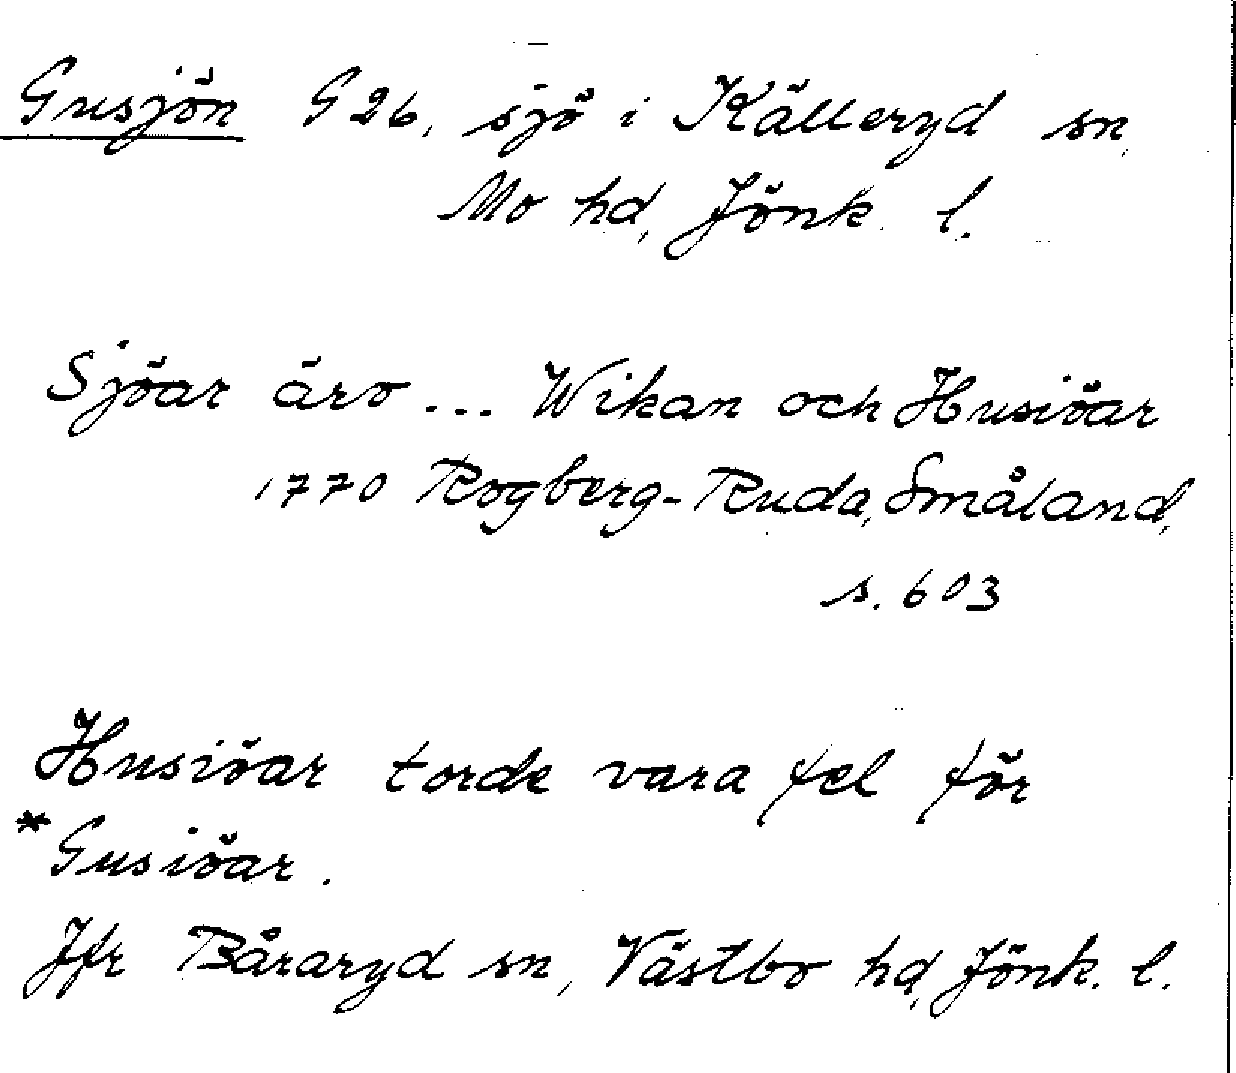 Gusjön G 26, sjö i Källeryd sn,
Mo hd, Jönk. l.
Sjöar äro ... Wikan och Husiöar
1770 Rogberg-Ruda, Småland,
s. 603
Husiöar torde vara fel för
*Gusiöar.
Jfr Båraryd sn, Västbo hd, Jönk. l.